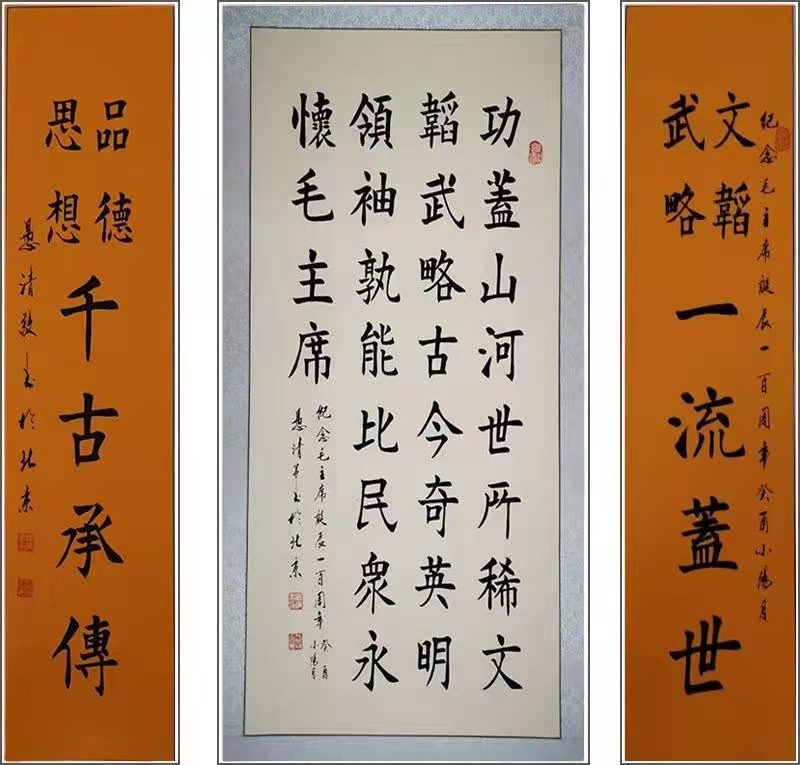 紀念毛主席誕辰一百周年癸酉小陽月
文韜
武略
一流蓋世
功蓋山河世所稀文
韜武略古今奇英明
領袖孰能比民衆永
懷毛主席
紀念毛主席誕辰一百周年癸酉
小陽月
清书於北京
品德
思想
千古承傳
清敬书於北京